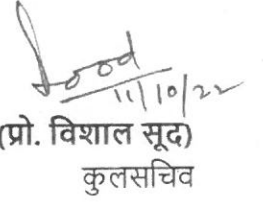 Sood
11/10/22
(प्रो. विशाल सूद)
कुलसचिव